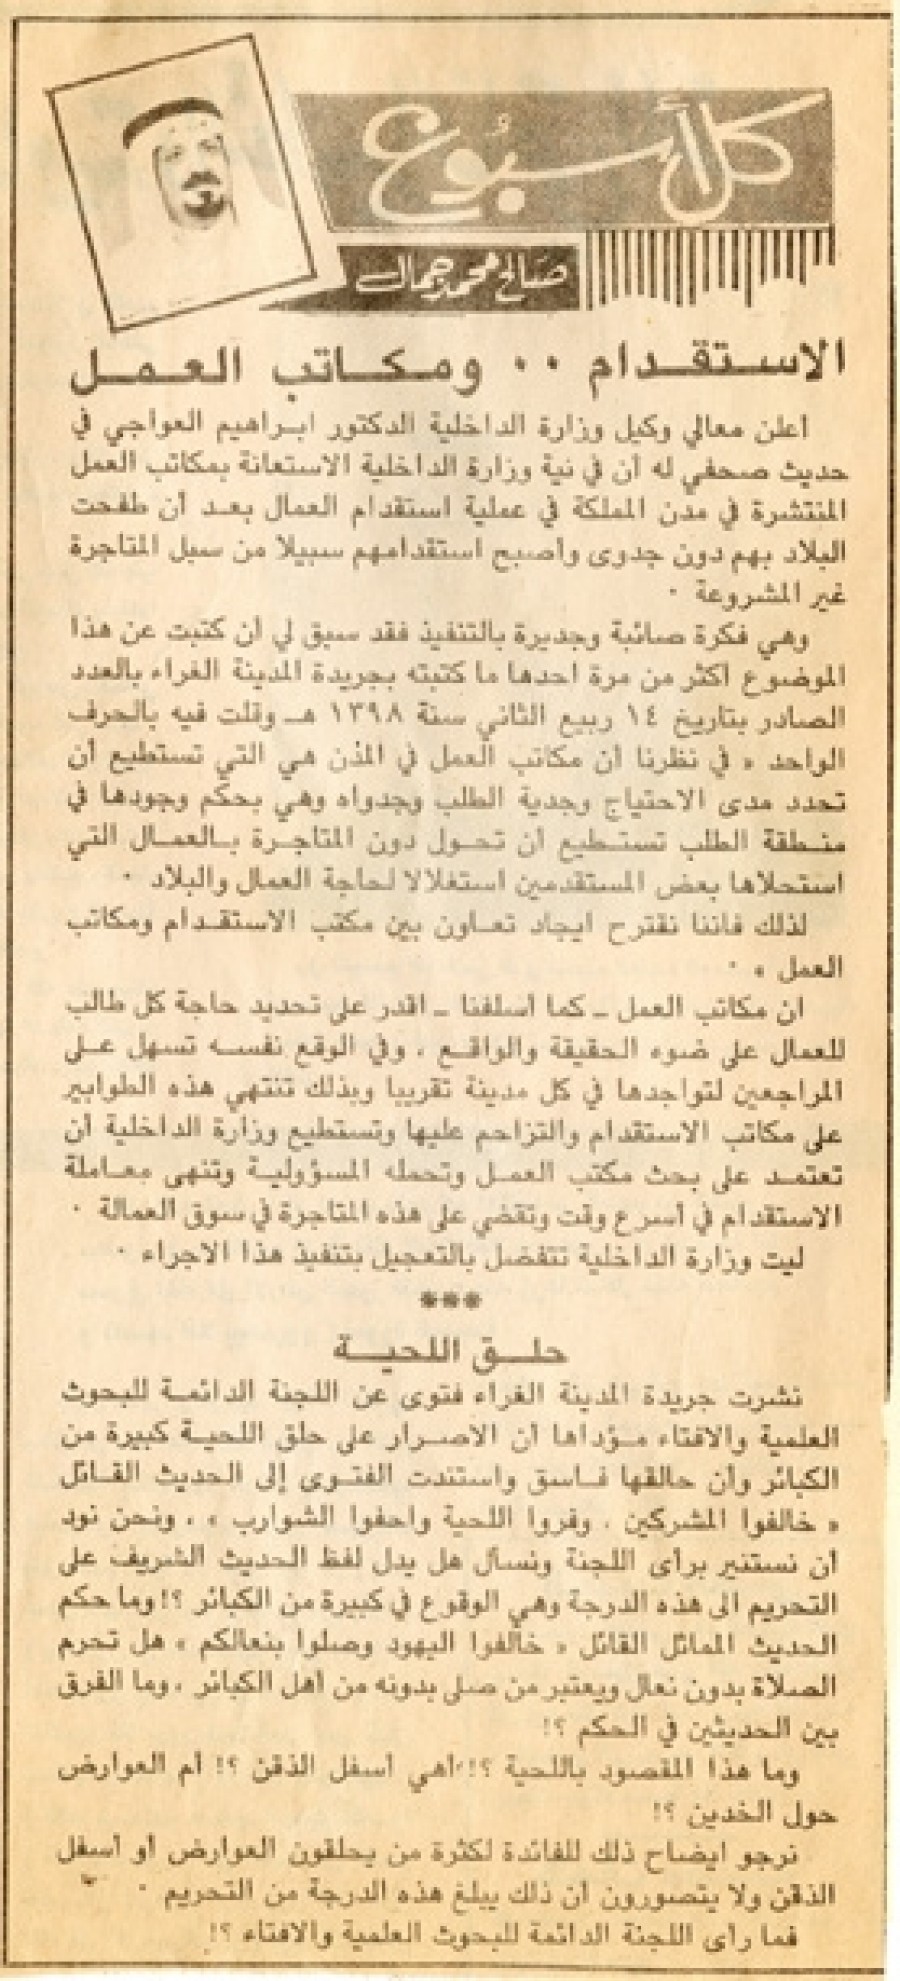 كل أسبوع
صالح محمد جمال
الاستقدام ٠٠ ومكاتب العمل
أعلن معالي وكيل وزارة الداخلية الدكتور ابراهيم العواجي في
حديث صحفي له أن في نية وزارة الداخلية الاستعانة بمكاتب العمل
المنتشرة في مدن المملكة في عملية استقدام العمال بعد أن طفحت
البلاد بهم دون جدوى وأصبح استقدامهم سبيلا من سبل المتاجرة
غير المشروعة ٠
وهي فكرة صائبة وجديرة بالتنفيذ فقد سبق لي أن كتبت عن هذا
الموضوع اكثر من مرة احدها ما كتبته بجريدة المدينة الغراء بالعدد
الصادر بتاريخ ١٤ ربيع الثاني سنة ١٣٩٨ هـ وقلت فيه بالحرف
الواحد « في نظرنا أن مكاتب العمل في المدن هي التي تستطيع أن
تحدد مدى الاحتياج وجدية الطلب وجدواه وهي بحكم وجودها في
منطقة الطلب تستطيع أن تحول دون المتاجرة بالعمال التي
استحلاها بعض المستقدمين استغلالا لحاجة العمال والبلاد ٠
لذلك فاننا نقترح ايجاد تعاون بين مكتب الاستقدام ومكاتب
العمل » ٠
ان مكاتب العمل ـ كما أسلفنا ـ اقدر على تحديد حاجة كل طالب
للعمال على ضوء الحقيقة والواقع ، وفي الوقع نفسه تسهل على
المراجعين لتواجدها في كل مدينة تقريبا وبذلك تنتهي هذه الطوابير
على مكاتب الاستقدام والتزاحم عليها وتستطيع وزارة الداخلية أن
تعتمد على بحث مكتب العمل وتحمله المسؤولية وتنهى معاملة
الاستقدام في أسرع وقت وتقضي على هذه المتاجرة في سوق العمالة ٠
ليت وزارة الداخلية تتفضل بالتعجيل بتنفيذ هذا الاجراء ٠
***
حلق اللحية
نشرت جريدة المدينة الغراء فتوى عن اللجنة الدائمة للبحوث
العلمية والافتاء مؤداها أن الاصرار على حلق اللحية كبيرة من
الكبائر وأن حالقها فاسق واستندت الفتوى إلى الحديث القائل
« خالفوا المشركين ، وفروا اللحية واحفوا الشوارب » ، ونحن نود
أن نستنير برأى اللجنة ونسأل هل يدل لفظ الحديث الشريف على
التحريم الى هذه الدرجة وهي الوقوع في كبيرة من الكبائر ؟! وما حكم
الحديث المماثل القائل « خالفوا اليهود وصلوا بنعالكم » هل تحرم
الصلاة بدون نعال ويعتبر من صلى بدونه من أهل الكبائر ، وما الفرق
بين الحديثين في الحكم ؟!
وما هذا المقصود باللحية ؟! أهي أسفل الذقن ؟! أم العوارض
حول الخدين ؟!
نرجو ايضاح ذلك للفائدة لكثرة من يحلقون العوارض أو أسفل
الذقن ولا يتصورون أن ذلك يبلغ هذه الدرجة من التحريم ٠
فما رأى اللجنة الدائمة للبحوث العلمية والافتاء ؟!